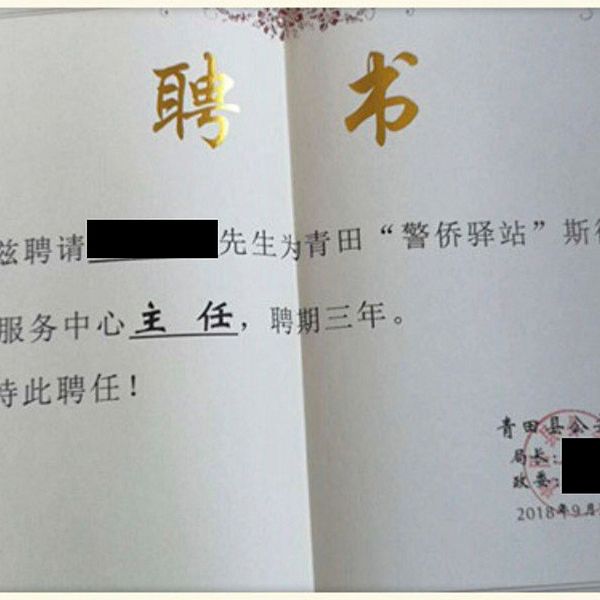 聘书
兹聘请 先生为青田“警侨驿站”斯
服务中心主任，聘期三年。
特此聘任！
青田县公
局长：
政委：
2018年9月